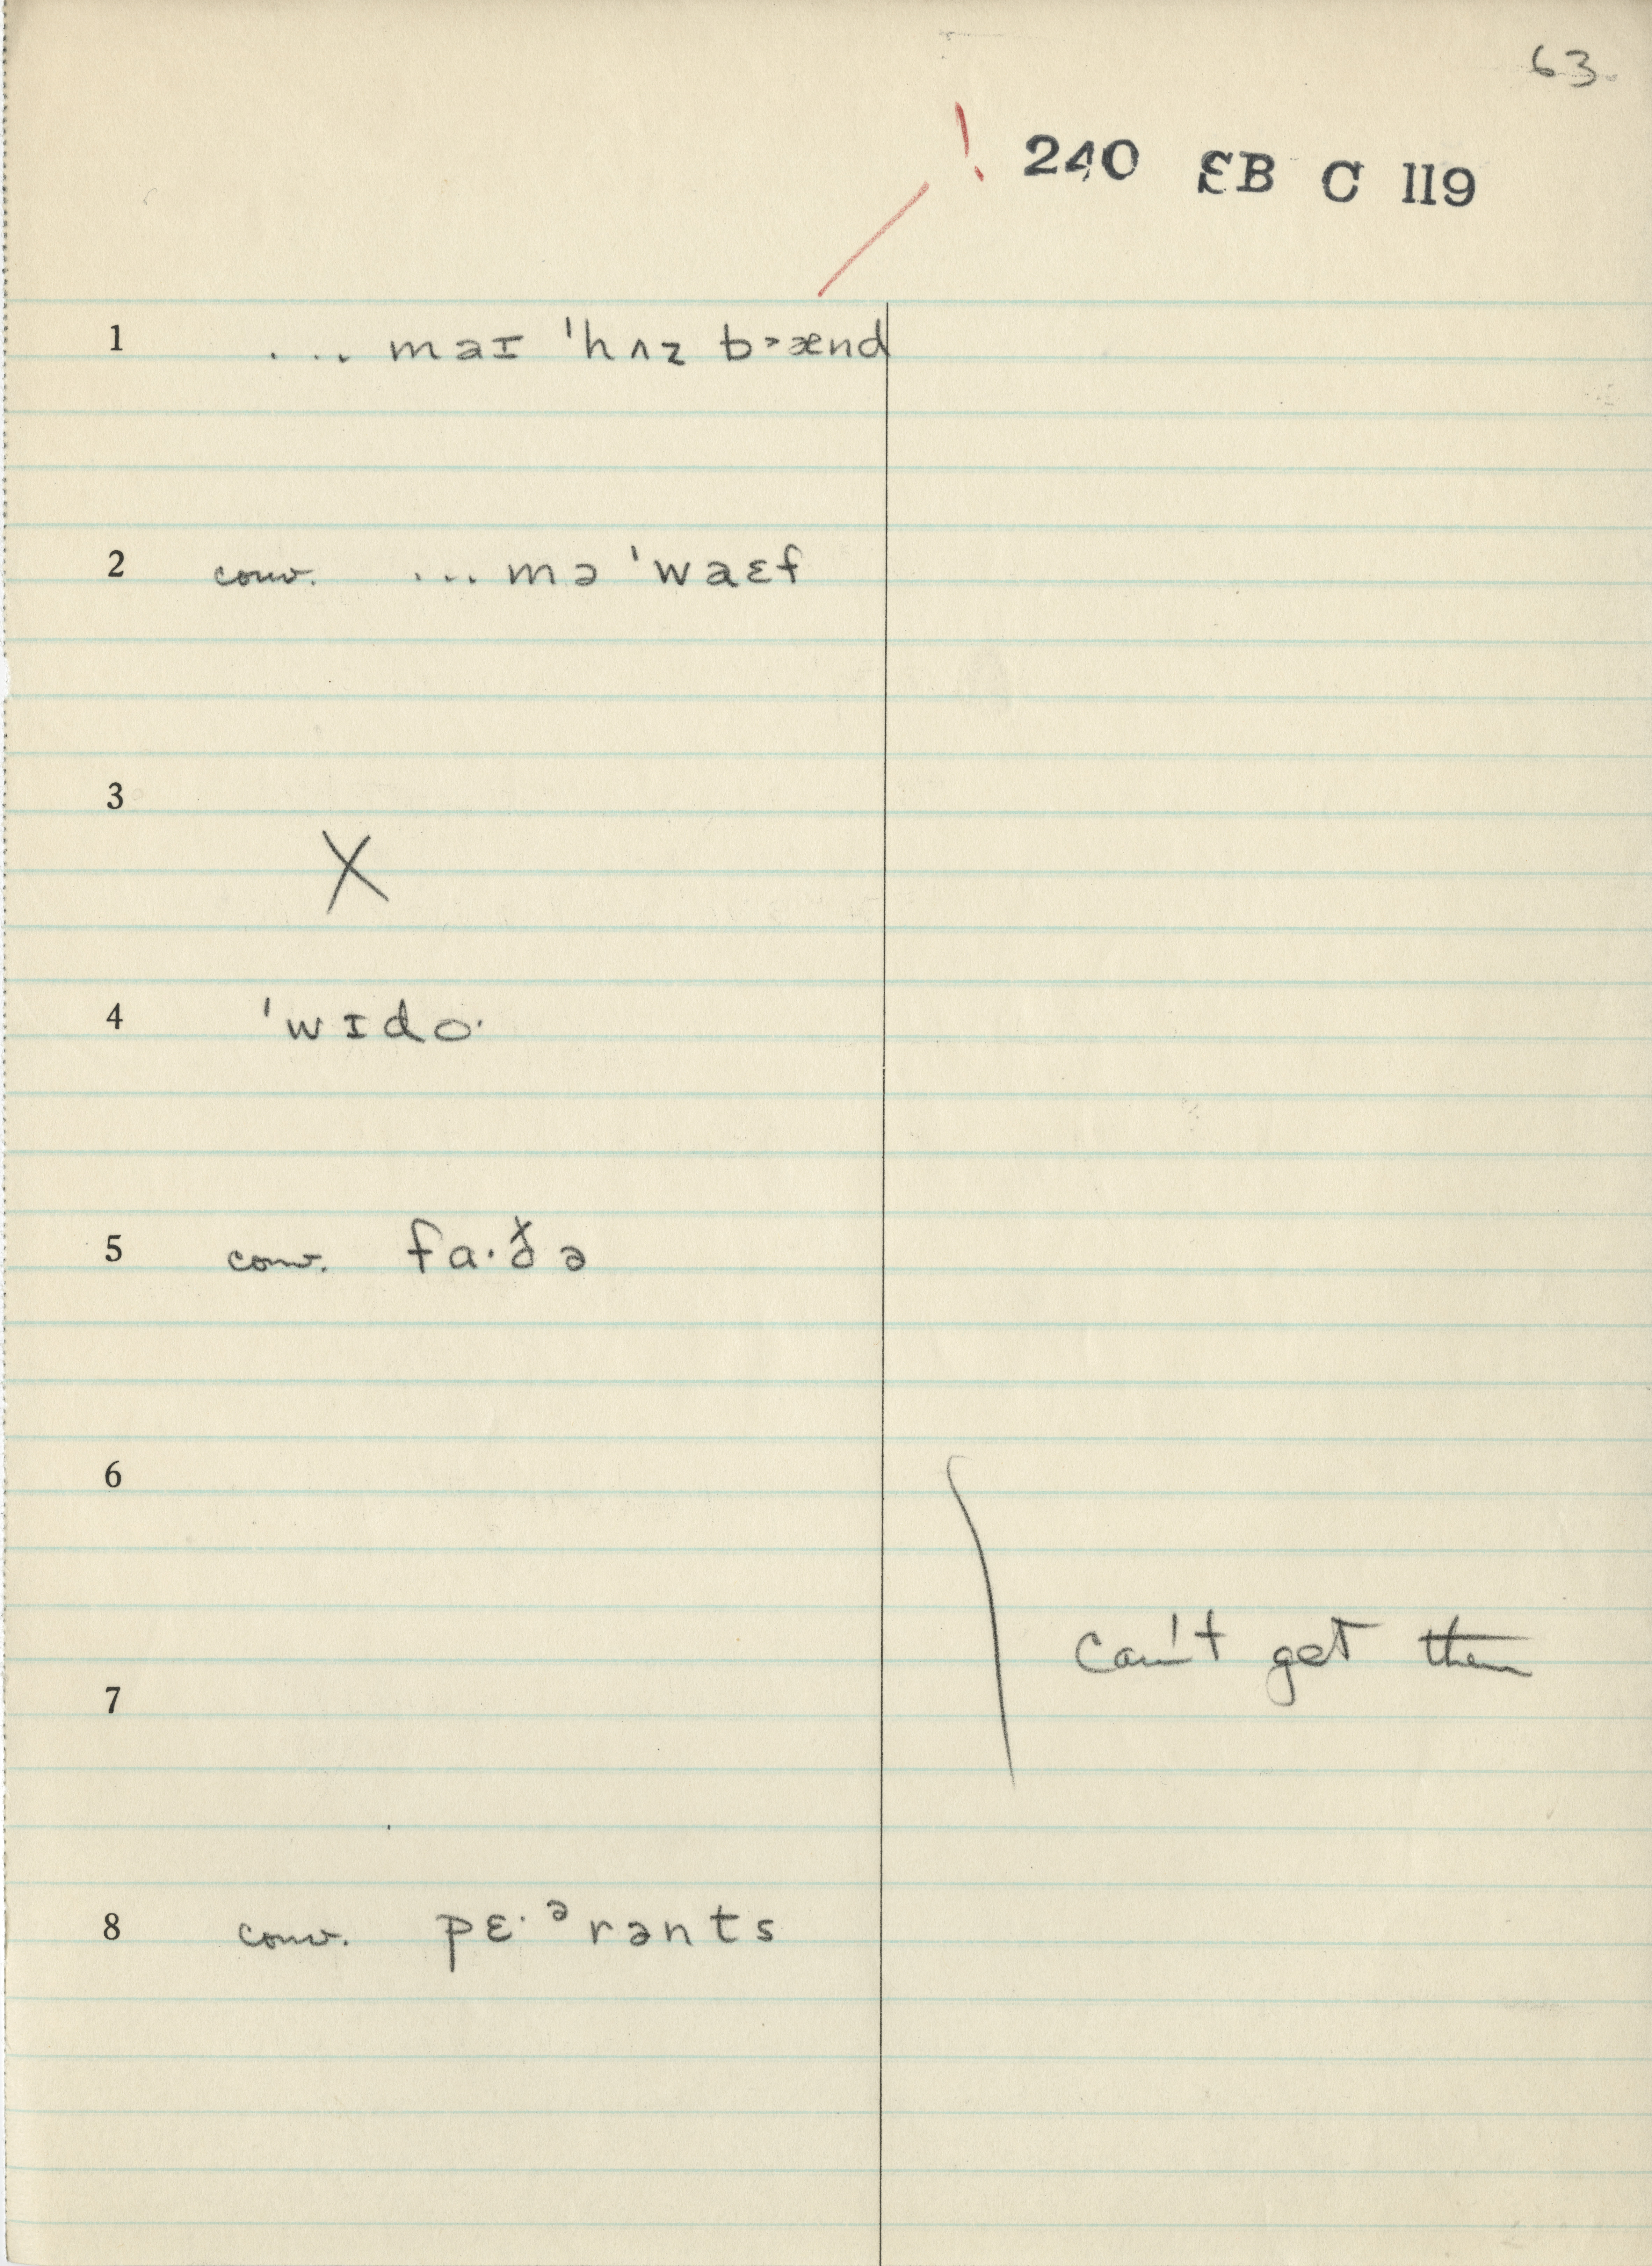 63.
! 240 ƐB C 119
1 ... maɪ 'hʌz b˃ænd
2 conv. ... mə 'waɛf
3
X
4 'wɪdo·
5 conv. fa·ðə
6
can't get them
7
8 conv. pɛ·ᵊrənts